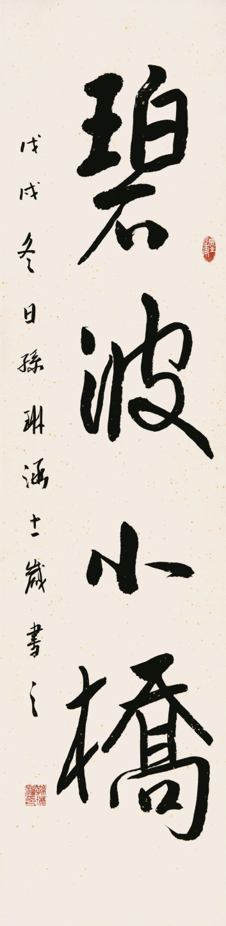 碧波小橋
戊戌冬日孫琳涵十一歲書之